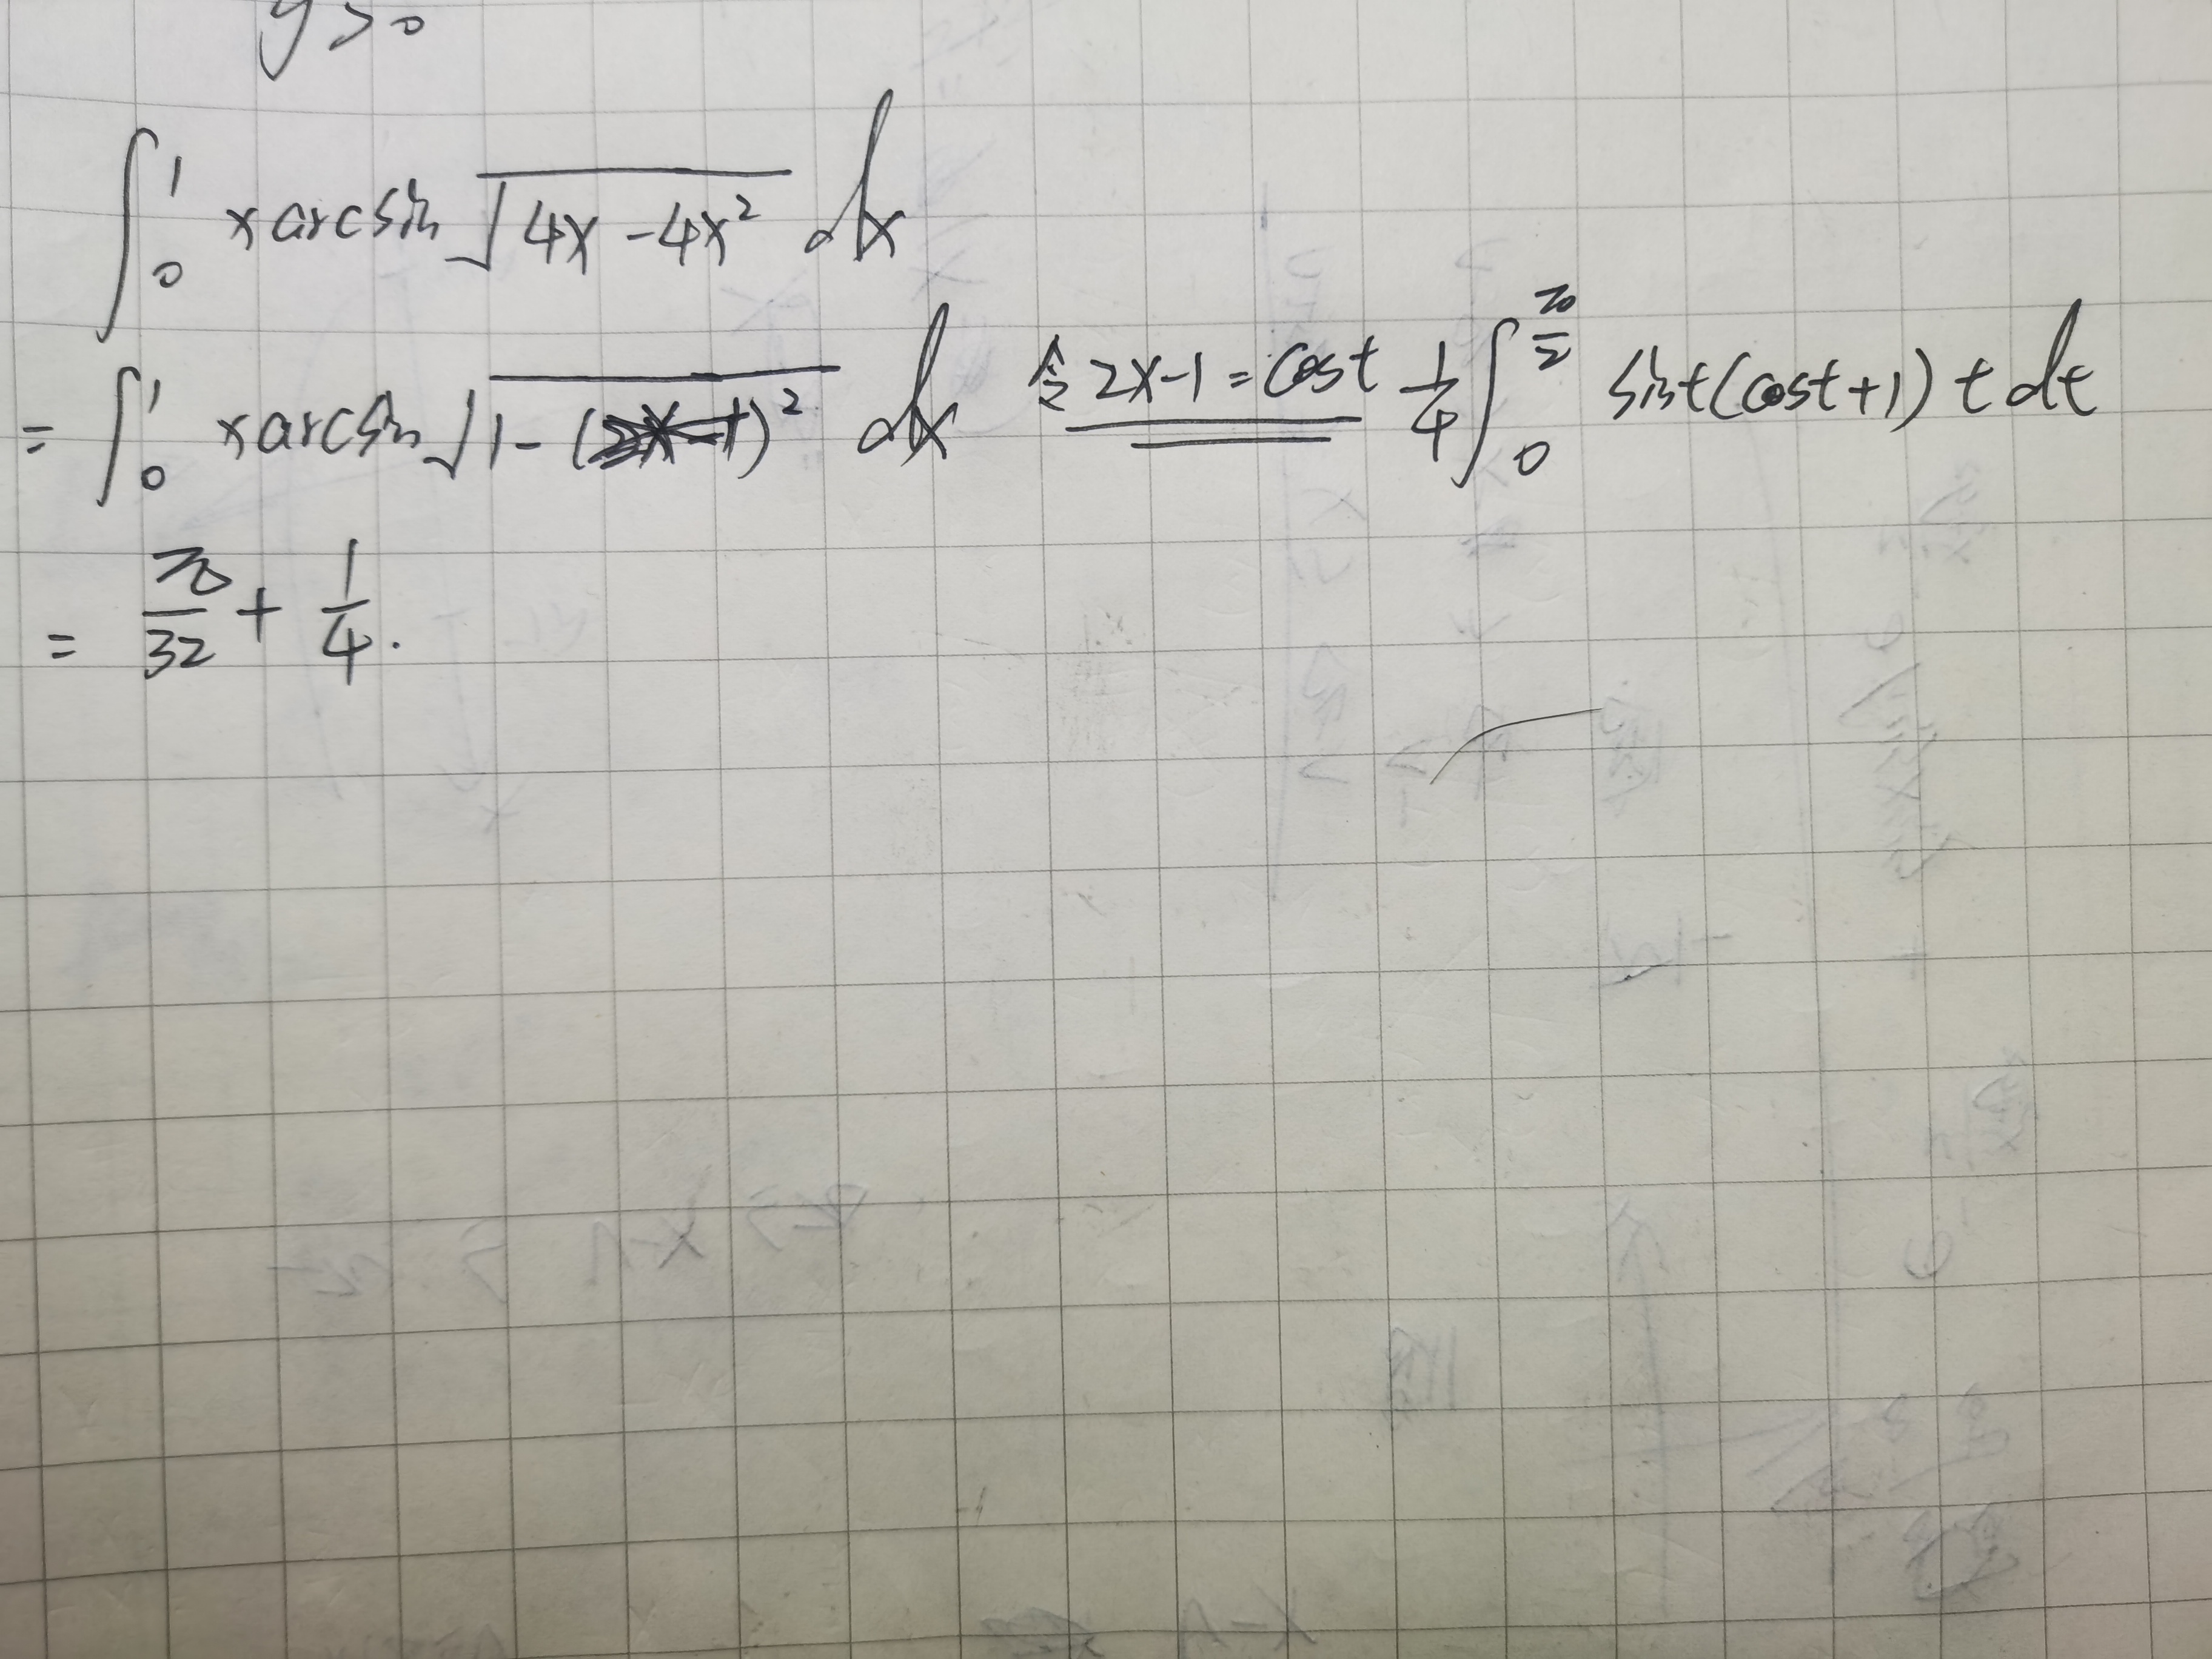 y>0
∫₀¹ x arcsin √(4x-4x²) dx
= ∫₀¹ x arcsin √(1-(2x-1)²) dx 令 2x-1=cost 1/4 ∫₀^(π/2) sint(cost+1) t dt
= π/32 + 1/4.